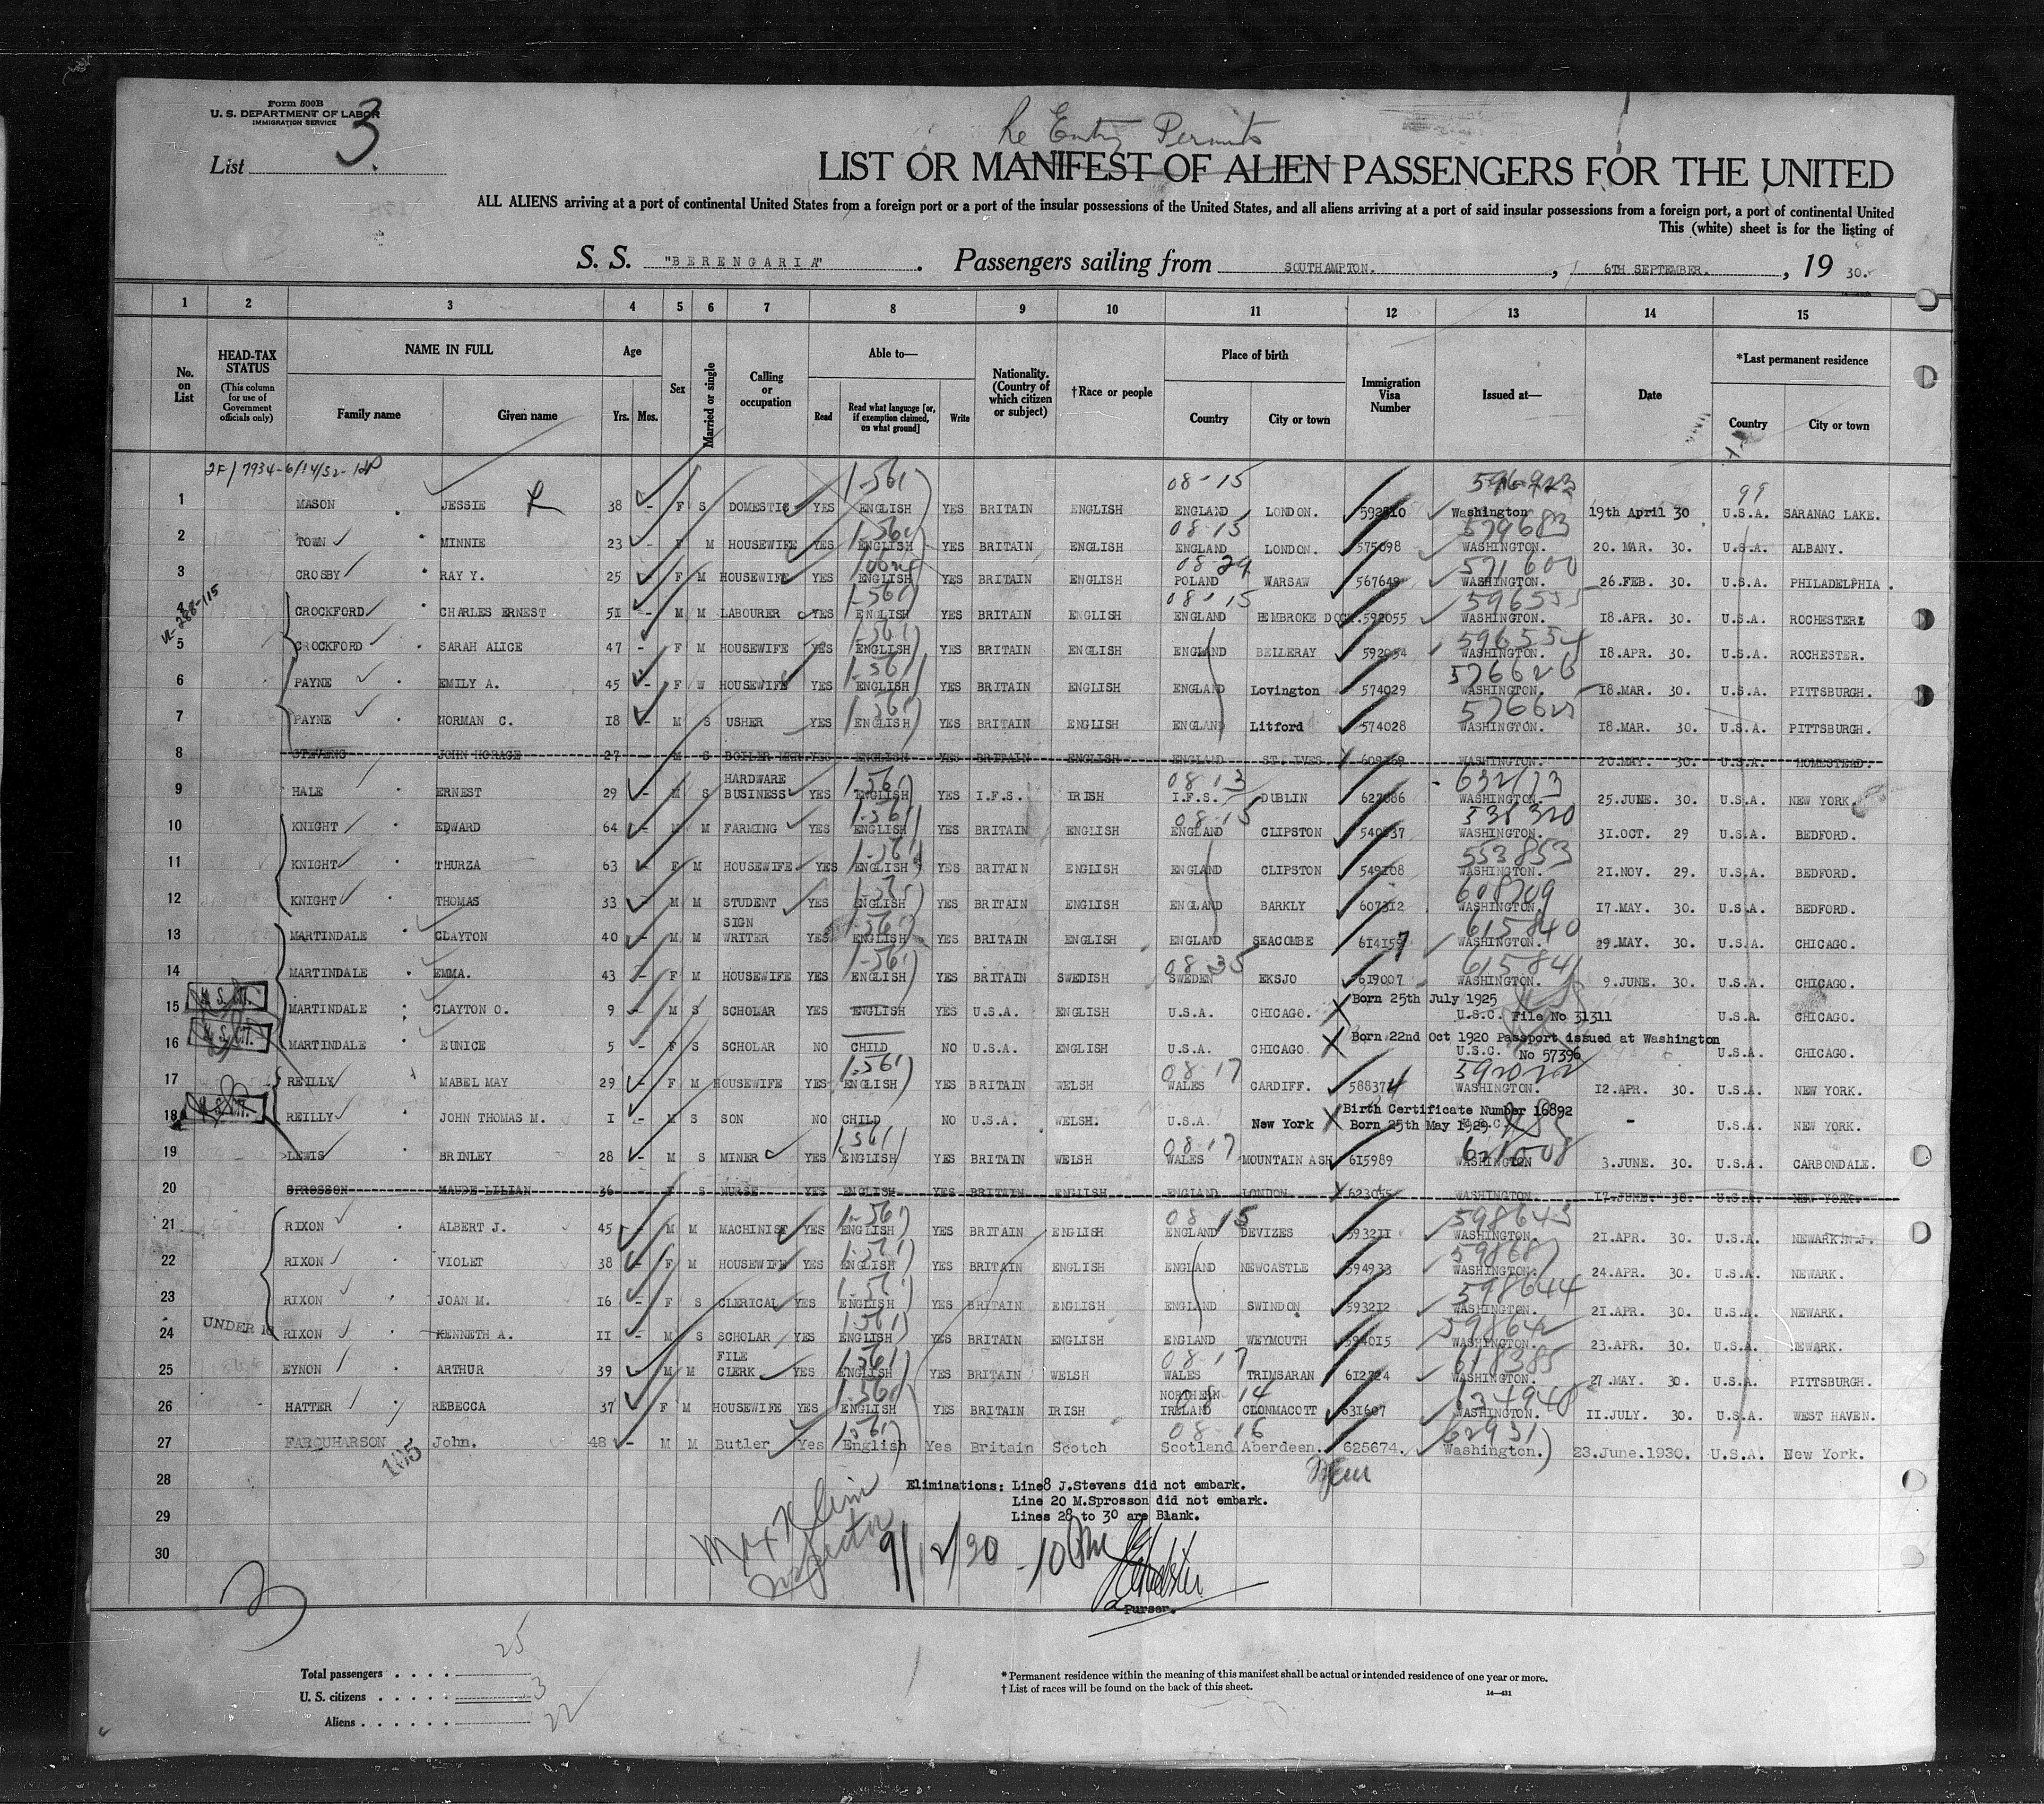 Form 500B
U. S. DEPARTMENT OF LABOR
IMMIGRATION SERVICE
List 3.
Re Entry Permits
LIST OR MANIFEST OF ALIEN PASSENGERS FOR THE UNITED
ALL ALIENS arriving at a port of continental United States from a foreign port or a port of the insular possessions of the United States, and all aliens arriving at a port of said insular possessions from a foreign port, a port of continental United
This (white) sheet is for the listing of
S. S. "BERENGARIA". Passengers sailing from SOUTHAMPTON. , 6TH SEPTEMBER. , 19 30.
1 2 3 4 5 6 7 8 9 10 11 12 13 14 15
No. on List
HEAD-TAX STATUS (This column for use of Government officials only)
NAME IN FULL Family name Given name
Age Yrs. Mos.
Sex
Married or single
Calling or occupation
Able to— Read Read what language [or, if exemption claimed, on what ground] Write
Nationality. (Country of which citizen or subject)
†Race or people
Place of birth Country City or town
Immigration Visa Number
Issued at—
Date
*Last permanent residence Country City or town
2F/7934-6/14/32-
1-561 08-15 99
1 MASON JESSIE 38 - F S DOMESTIC YES ENGLISH YES BRITAIN ENGLISH ENGLAND LONDON. Washington 19th April 30 U.S.A. SARANAC LAKE.
1-561 08-15 579683
2 TOWN MINNIE 23 - F M HOUSEWIFE YES ENGLISH YES BRITAIN ENGLISH ENGLAND LONDON. 575098 WASHINGTON. 20. MAR. 30. U.S.A. ALBANY.
08-29 571600
3 CROSBY RAY Y. 25 - F M HOUSEWIFE YES ENGLISH YES BRITAIN ENGLISH POLAND WARSAW 567649 WASHINGTON. 26.FEB. 30. U.S.A. PHILADELPHIA.
1-561 08-15 596555
CROCKFORD CHARLES ERNEST 51 - M M LABOURER YES ENGLISH YES BRITAIN ENGLISH ENGLAND PEMBROKE DOCK. 592055 WASHINGTON. 18.APR. 30. U.S.A. ROCHESTER.
1-561 596554
5 CROCKFORD SARAH ALICE 47 - F M HOUSEWIFE YES ENGLISH YES BRITAIN ENGLISH ENGLAND BELLERAY 592054 WASHINGTON. 18.APR. 30. U.S.A. ROCHESTER.
1-561 576626
6 PAYNE EMILY A. 45 - F W HOUSEWIFE YES ENGLISH YES BRITAIN ENGLISH ENGLAND Lovington 574029 WASHINGTON. 18.MAR. 30. U.S.A. PITTSBURGH.
1-561 576625
7 PAYNE NORMAN C. 18 - M S USHER YES ENGLISH YES BRITAIN ENGLISH ENGLAND Litford 574028 WASHINGTON. 18.MAR. 30. U.S.A. PITTSBURGH.
8 STEVENS JOHN HORACE 27 - M S BOILER YES ENGLISH YES BRITAIN ENGLISH ENGLAND ST. IVES 609269 WASHINGTON. 20.MAY. 30. U.S.A. HOMESTEAD.
HARDWARE 1-561 08-13
9 HALE ERNEST 29 - M S BUSINESS YES ENGLISH YES I.F.S. IRISH I.F.S. DUBLIN WASHINGTON. 25.JUNE. 30. U.S.A. NEW YORK.
1-561 08-15
10 KNIGHT EDWARD 64 - M M FARMING YES ENGLISH YES BRITAIN ENGLISH ENGLAND CLIPSTON WASHINGTON. 31.OCT. 29 U.S.A. BEDFORD.
1-561 553853
11 KNIGHT THURZA 63 - F M HOUSEWIFE. YES ENGLISH YES BRITAIN ENGLISH ENGLAND CLIPSTON 549208 WASHINGTON. 21.NOV. 29. U.S.A. BEDFORD.
608709
12 KNIGHT THOMAS 33 - M M STUDENT YES ENGLISH YES BRITAIN ENGLISH ENGLAND BARKLY 607312 WASHINGTON. 17.MAY. 30. U.S.A. BEDFORD.
SIGN 1-561 615840
13 MARTINDALE CLAYTON 40 - M M WRITER YES ENGLISH YES BRITAIN ENGLISH ENGLAND SEACOMBE 614157 WASHINGTON. 29.MAY. 30. U.S.A. CHICAGO.
1-561 08-35 615841
14 MARTINDALE EMMA. 43 - F M HOUSEWIFE YES ENGLISH YES BRITAIN SWEDISH SWEDEN EKSJO 619007 WASHINGTON. 9.JUNE. 30. U.S.A. CHICAGO.
Born 25th July 1925
15 MARTINDALE CLAYTON O. 9 - M S SCHOLAR YES ENGLISH YES U.S.A. ENGLISH U.S.A. CHICAGO. U.S.C. File No 31311 U.S.A. CHICAGO.
Born 22nd Oct 1920 Passport issued at Washington
16 MARTINDALE EUNICE 5 - F S SCHOLAR NO CHILD NO U.S.A. ENGLISH U.S.A. CHICAGO U.S.C. No 57396 U.S.A. CHICAGO.
1-561 08-17
17 REILLY MABEL MAY 29 - F M HOUSEWIFE YES ENGLISH YES BRITAIN WELSH WALES CARDIFF. 588374 WASHINGTON. 12.APR. 30. U.S.A. NEW YORK.
Birth Certificate Number 16892
18 REILLY JOHN THOMAS M. 1 - M S SON NO CHILD NO U.S.A. WELSH. U.S.A. New York Born 25th May 1929 - U.S.A. NEW YORK.
1561 08-17 621508
19 LEWIS BRINLEY 28 - M S MINER YES ENGLISH YES BRITAIN WELSH WALES MOUNTAIN ASH 615989 WASHINGTON 3.JUNE. 30. U.S.A. CARBONDALE.
20 SPROSSON MAUDE LILIAN 36 - F S NURSE YES ENGLISH YES BRITAIN ENGLISH ENGLAND LONDON 623055 WASHINGTON. 17.JUNE. 30. U.S.A. NEW YORK.
1-561 08 15 598643
21 RIXON ALBERT J. 45 - M M MACHINIST YES ENGLISH YES BRITAIN ENGLISH ENGLAND DEVIZES 593211 WASHINGTON. 21.APR. 30. U.S.A. NEWARK.N.J.
1-561
22 RIXON VIOLET 38 - F M HOUSEWIFE YES ENGLISH YES BRITAIN ENGLISH ENGLAND NEWCASTLE 594933 WASHINGTON. 24.APR. 30. U.S.A. NEWARK.
1-561 598644
23 RIXON JOAN M. 16 - F S CLERICAL YES ENGLISH YES BRITAIN ENGLISH ENGLAND SWINDON 593212 WASHINGTON. 21.APR. 30. U.S.A. NEWARK.
UNDER 16 1-561 598642
24 RIXON KENNETH A. 11 - M S SCHOLAR YES ENGLISH YES BRITAIN ENGLISH ENGLAND WEYMOUTH 594015 WASHINGTON. 23.APR. 30. U.S.A. NEWARK.
FILE 1561 08-17 618385
25 EYNON ARTHUR 39 M M CLERK YES ENGLISH YES BRITAIN WELSH WALES TRIMSARAN 612724 WASHINGTON. 27.MAY. 30. U.S.A. PITTSBURGH.
1-561 NORTHERN 08 14
26 HATTER REBECCA 37 - F M HOUSEWIFE YES ENGLISH YES BRITAIN IRISH IRELAND CLONMACOTT 631607 WASHINGTON. 11.JULY. 30. U.S.A. WEST HAVEN.
1561 08-16 62931
27 FARQUHARSON John. 48 - M M Butler Yes English Yes Britain Scotch Scotland Aberdeen. 625674. Washington. 23.June.1930. U.S.A. New York.
105
28 Eliminations: Line8 J.Stevens did not embark.
Line 20 M.Sprosson did not embark.
29 Lines 28 to 30 are Blank.
30
Max Klein
Inspector
9/12/30
Purser.
Total passengers . . . . 25
U. S. citizens . . . . . 3
Aliens . . . . . . 22
* Permanent residence within the meaning of this manifest shall be actual or intended residence of one year or more.
† List of races will be found on the back of this sheet.
14—431